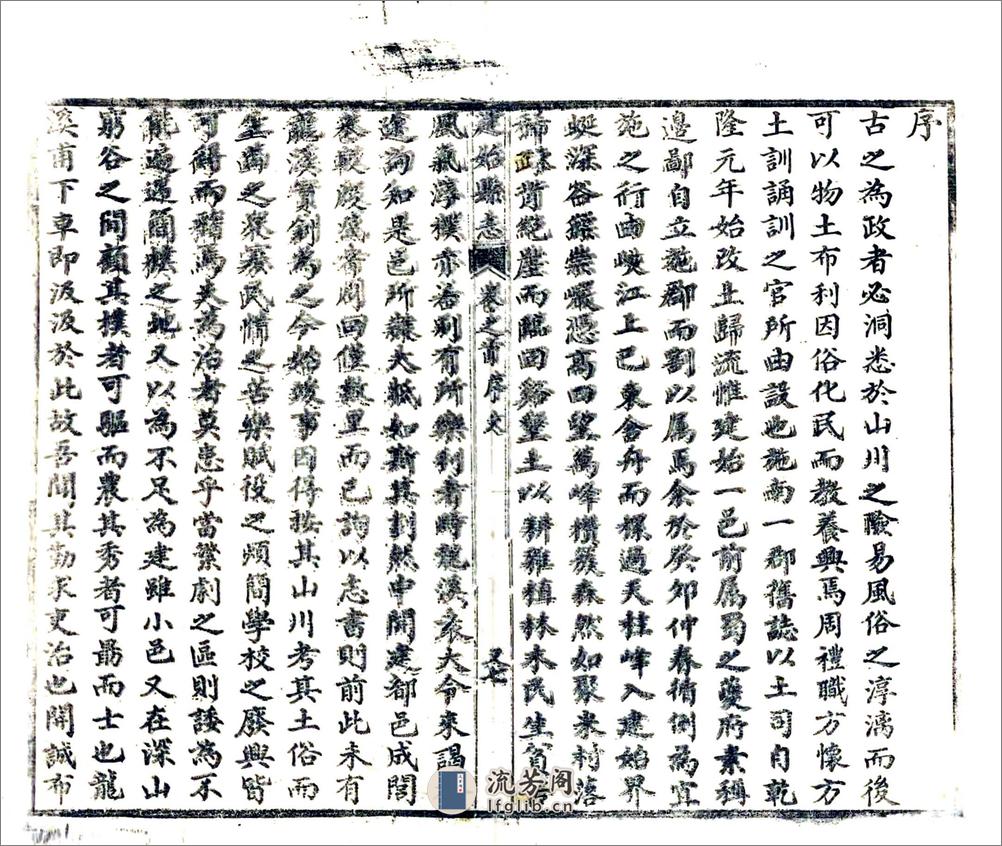 序
古之為政者必洞悉於山川之險易風俗之淳漓而後
可以物土布利因俗化民而教養興焉周禮職方懷方
土訓誦訓之官所由設也施南一郡舊誌以土司自乾
隆元年始改土歸流惟建始一邑前属蜀之夔府素稱
邊鄙自立施郡而割以属焉余於癸卯仲春循例為宜
施之行由峽江上巴東舍舟而樑過天柱峰入建始界
蜒深谷緜崇巘憑高四望萬峰攢簇森然如聚米村落
稀踈背絕壁而臨回谿墾土以耕雜植林木民生質
建始縣志 卷之首 序文 又七
風氣淳樸亦若别有所樂利者時龍溪袁大令來謁
途詢知是邑所轄大抵如斯其劃然中開建都邑成閭
者不過周回僅數里而已詢以志書則前此未有
龍溪實創為之今始竣事因得按其山川考其土俗而
生齒之衆寡民情之苦樂賦役之煩簡學校之廢興皆
可得而稽焉夫為治者莫患乎當繁劇之區則諉為不
能遍過簡樸之地又以為不足為建雖小邑又在深山
窮谷之間顧其樸者可驅而農其秀者可勗而士也龍
溪甫下車即汲汲於此故吾聞其勤求吏治也開誠布
流芳阁
lfglib.cn